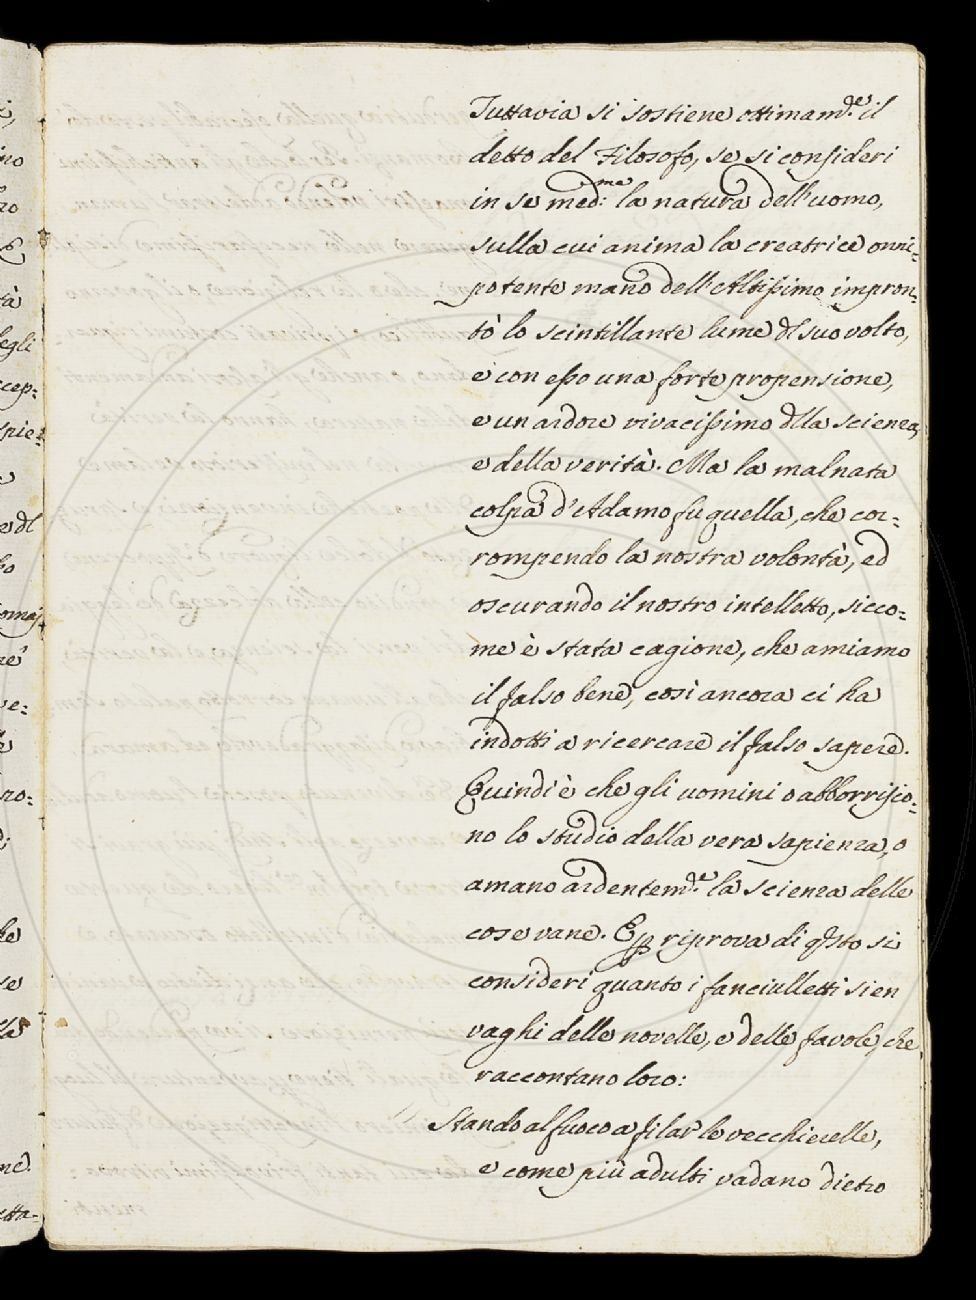 Tuttavia si sostiene ottimam.de il
detto del Filosofo, se si consideri
in se med:me la natura dell'uomo,
sulla cui anima la creatrice onni-
potente mano dell'Altissimo impron-
tò lo scintillante lume dl suo volto,
e con esso una forte propensione,
e un ardore vivacissimo dlla scienza,
e della verità. Ma la malnata
colpa d'Adamo fu quella, che cor=
rompendo la nostra volontà, ed
oscurando il nostro intelletto, sicco=
me è stata cagione, che amiamo
il falso bene, così ancora ci ha
indotti a ricercare il falso sapere.
Quindi è che gli uomini o abborrisco=
no lo studio della vera sapienza, o
amano ardentem.de la scienza delle
cose vane. E p riprova di qsto si
consideri quanto i fanciulletti sien
vaghi delle novelle, e delle favole, che
raccontano loro:
Stando al fuoco a filar le vecchierelle,
e come più adulti vadano dietro